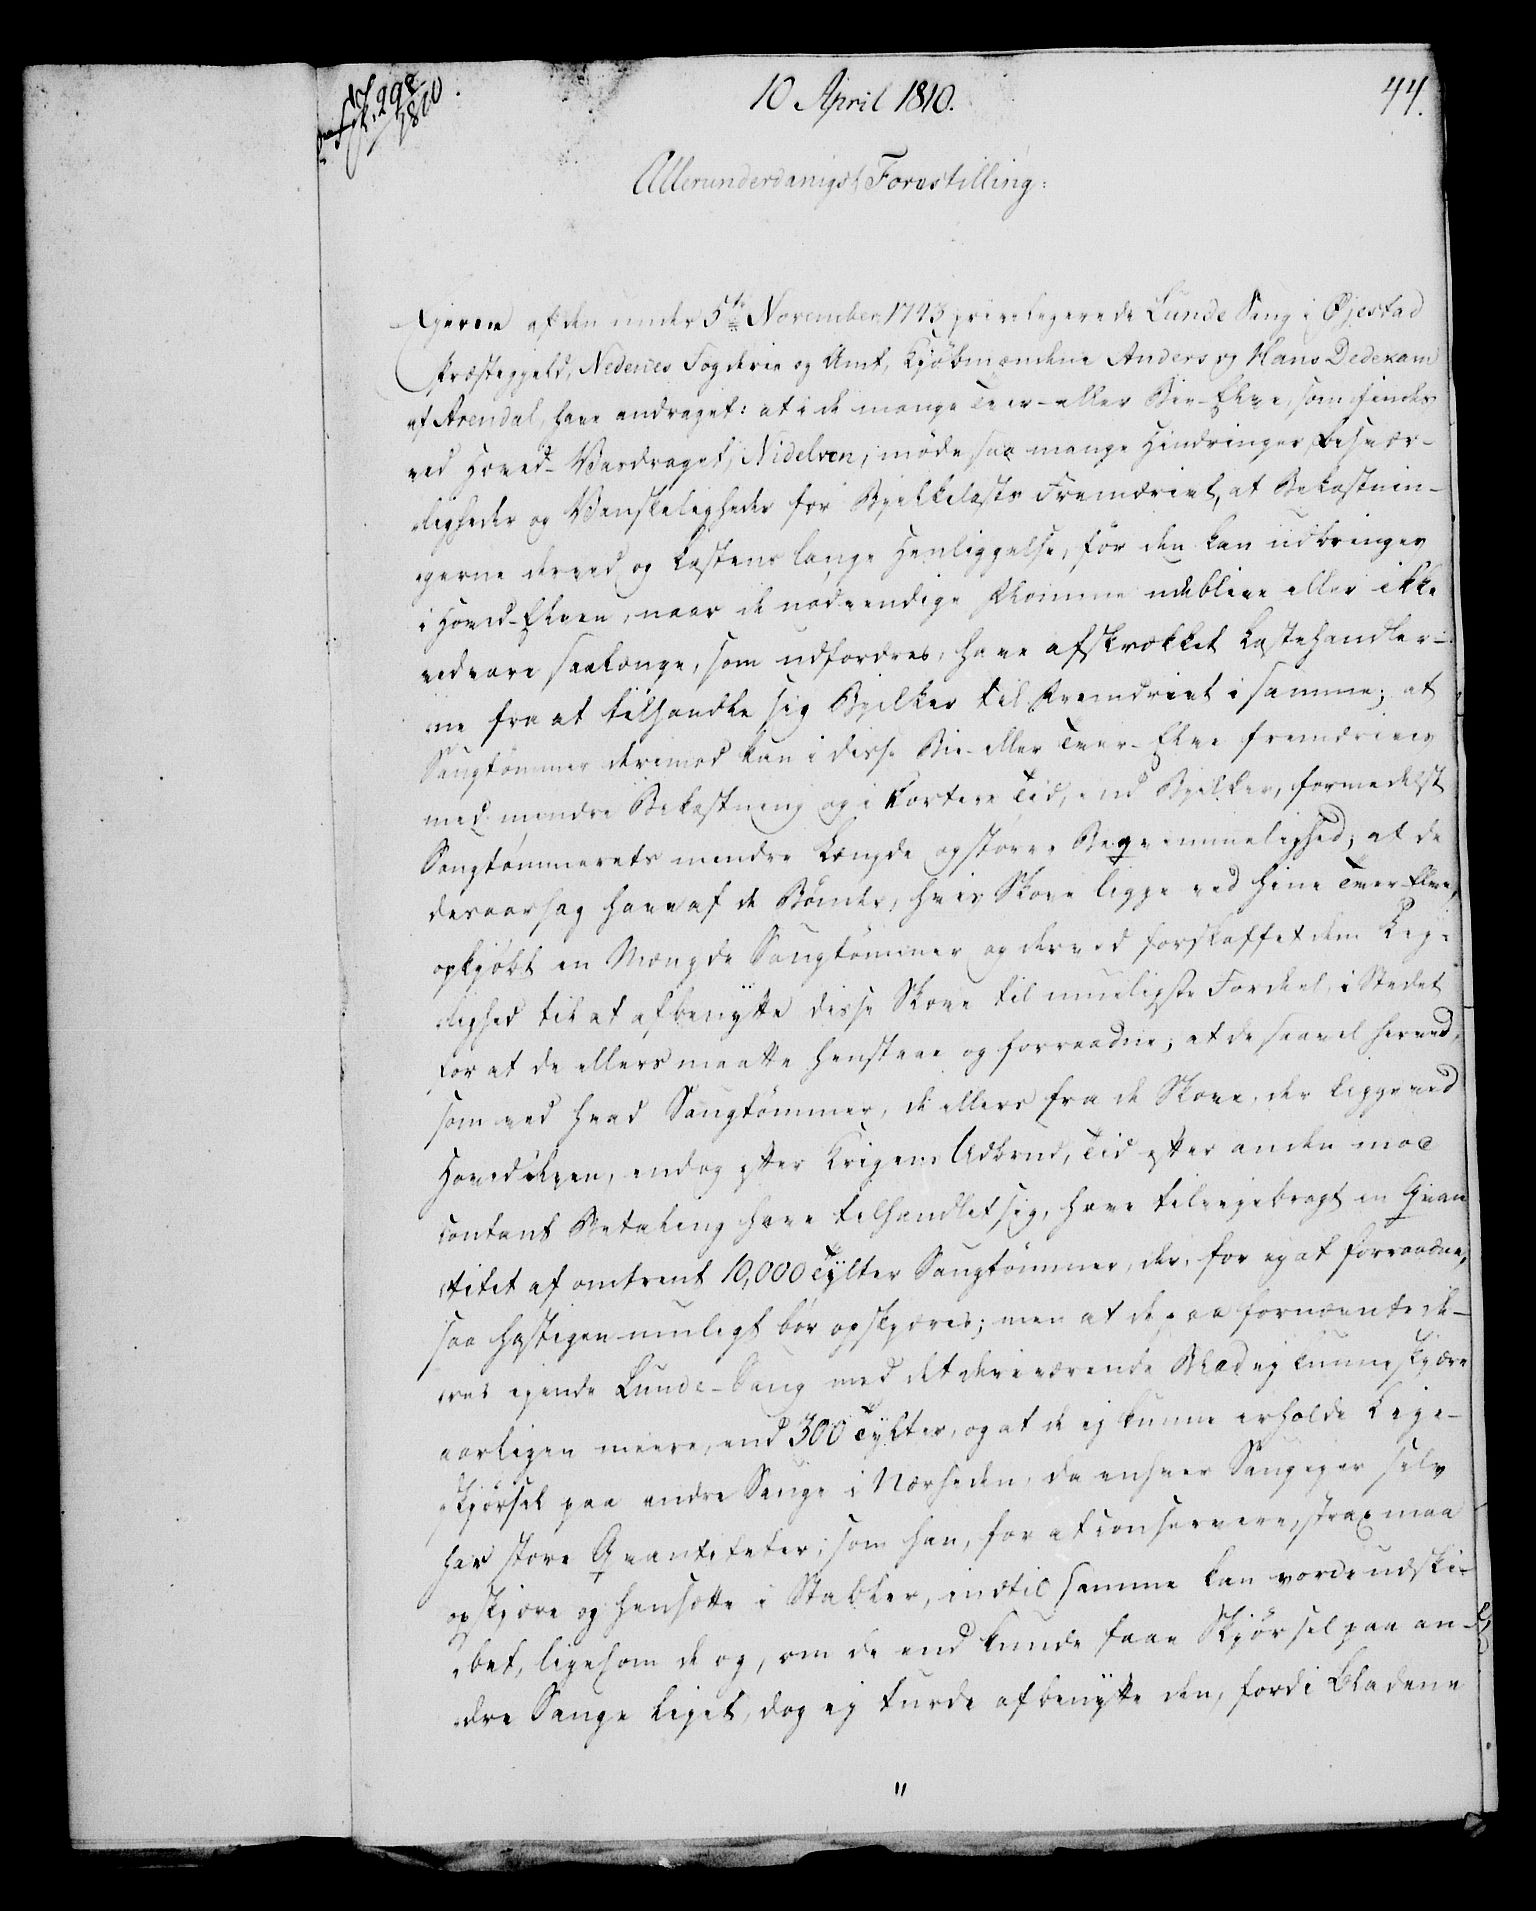 10 April 1810.
44.
1810
Allerunderdanigst Forestilling:
Ejerne af den under 5te November 1793 privilegerede Lunde Saug i Øjestad
Præstegjeld, Nedenes Fogderie og Amt, Kjøbmændene Anders og Hans Dedekam
af Arendal, have andraget: at i de mange Tver- eller Bie-Elve, som findes
ved Hoved-Vasdraget, Nidelven, møde saa mange Hindringer, Besvær-
ligheder og Vanskeligheder for Bjelkelasts Fremdrivt, at Bekostnin-
gerne derved og Lastens lange Henliggelse, før den kan udbringes
i Hoved-Elven, naar de nødvendige Flomme udeblive eller ikke
vedvare saalænge, som udfordres, have afskrækket Lastehandler-
ne fra at tilhandle sig Bjelker til Fremdrivt i samme; at
Saugtømmer derimod kan i disse Bie- eller Tver-Elve fremdrives
med mindre Bekostning og i kortere Tid, end Bjelker, formedelst
Saugtømmerets mindre Længde og større Beqvemmelighed; at de
desaarsag have af de Bønder, hvis Skove ligge ved hine Tver-Elve,
opkjøbt en Mængde Saugtømmer og derved forskaffet dem Lej-
lighed til at afbenytte disse Skove til mueligste Fordeel, i Stedet
for at de ellers maatte henstaae og forraadne; at de saavel herved,
som ved hvad Saugtømmer, de ellers fra de Skove, der ligge ved
Hovedelven, endog efter Krigens Udbrud, Tid efter anden mod
contant Betaling have tilhandlet sig, have tilvejebragt en Qvan
titet af omtrent 10,000 Tylter Saugtømmer, der, for ej at forraadne,
saa hastigen mueligt bør opskjæres; men at de paa fornævnte de-
res ejende Lunde-Saug med det derværende Blad ej kunne skjære
aarligen meere, end 300 Tylter, og at de ej kunne erholde Leje-
skjørsel paa andre Sauge i Nærheden, da enhver Saugejer selv
har store Qvantiteter, som han, for at conservere, strax maa
opskjære og hensætte i Stabler, indtil samme kan vorde udski-
bet, ligesom de og, om de end kunde faae Skjørsel paa an-
dre Sauge lejet, dog ej turde afbenytte den, fordi Bladene
"